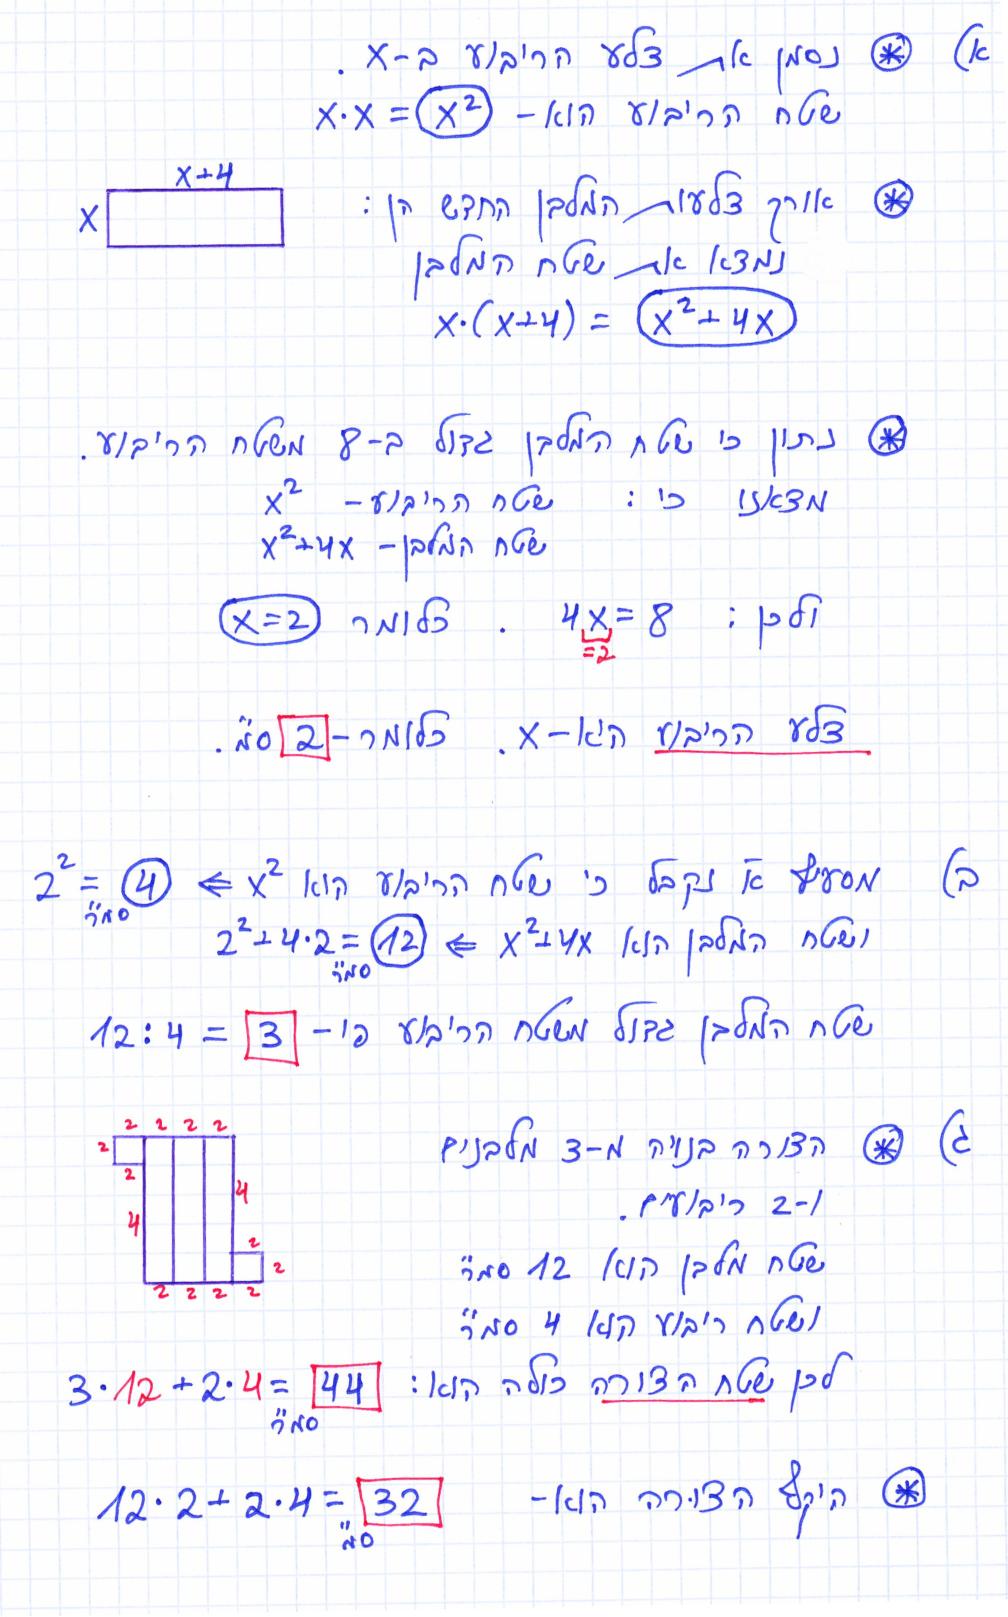 א) * נסמן את צלע הריבוע ב-x .
שטח הריבוע הוא - x·x = x²
* אורך צלעות המלבן החדש הן :
x+4
x
נמצא את שטח המלבן
x·(x+4) = x²+4x
* נתון כי שטח המלבן גדול ב-8 משטח הריבוע.
מצאנו כי : שטח הריבוע - x²
שטח המלבן - x²+4x
ולכן : 4x = 8 . כלומר x=2
=2
צלע הריבוע היא - x . כלומר - 2 ס"מ .
ב) מסעיף א נקבל כי שטח הריבוע הוא x² ⇐ 2² = 4 סמ"ר
ושטח המלבן הוא x²+4x ⇐ 2²+4·2 = 12 סמ"ר
שטח המלבן גדול משטח הריבוע פי - 12:4 = 3
ג) * הצורה בנויה מ-3 מלבנים
ו-2 ריבועים .
שטח מלבן הוא 12 סמ"ר
ושטח ריבוע הוא 4 סמ"ר
2 2 2 2
2
2
4 4
2
2
2 2 2 2
לכן שטח הצורה כולה הוא : 3·12+2·4 = 44 סמ"ר
* היקף הצורה הוא - 12·2+2·4 = 32 ס"מ